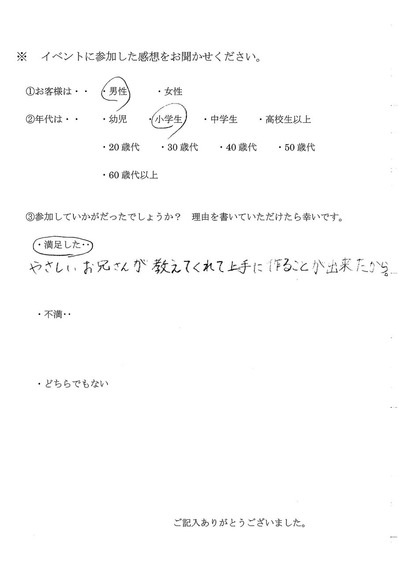 ※ イベントに参加した感想をお聞かせください。
①お客様は・・ ・男性 ・女性
②年代は・・ ・幼児 ・小学生 ・中学生 ・高校生以上
・20歳代 ・30歳代 ・40歳代 ・50歳代
・60歳代以上
③参加していかがだったでしょうか? 理由を書いていただけたら幸いです。
・満足した・・
やさしいお兄さんが教えてくれて上手に作ることが出来たから。
・不満・・
・どちらでもない
ご記入ありがとうございました。